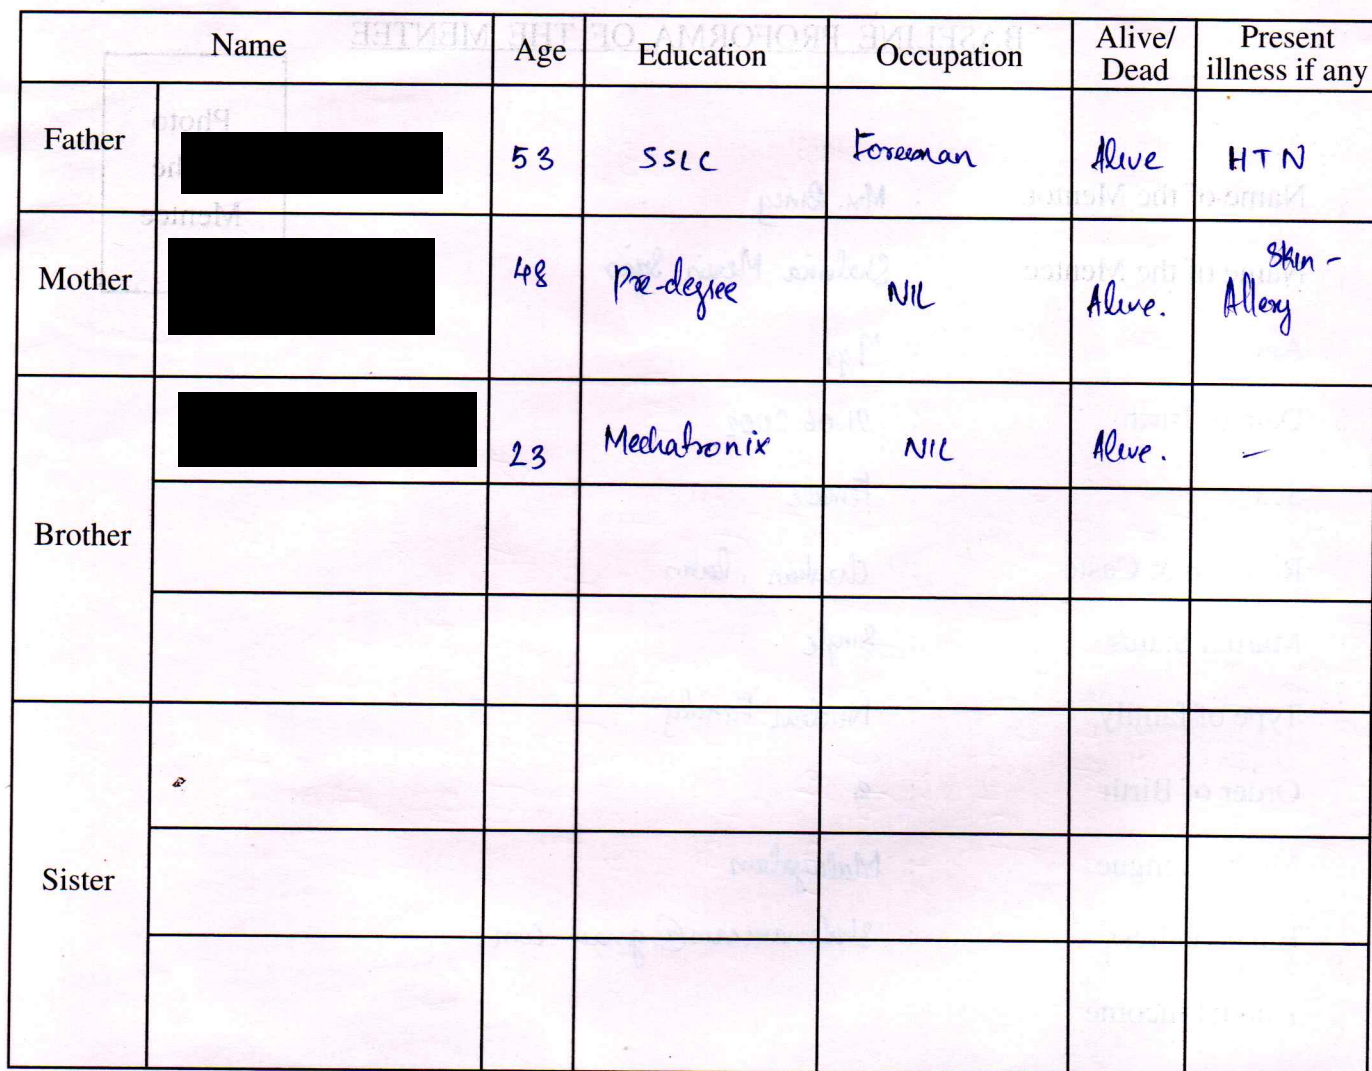 Name Age Education Occupation Alive/ Dead Present illness if any
Father 53 SSLC Foreman Alive HTN
Mother 48 Pre-degree NIL Alive. Skin - Allery
23 Mechatronix NIL Alive. -
Brother
Sister